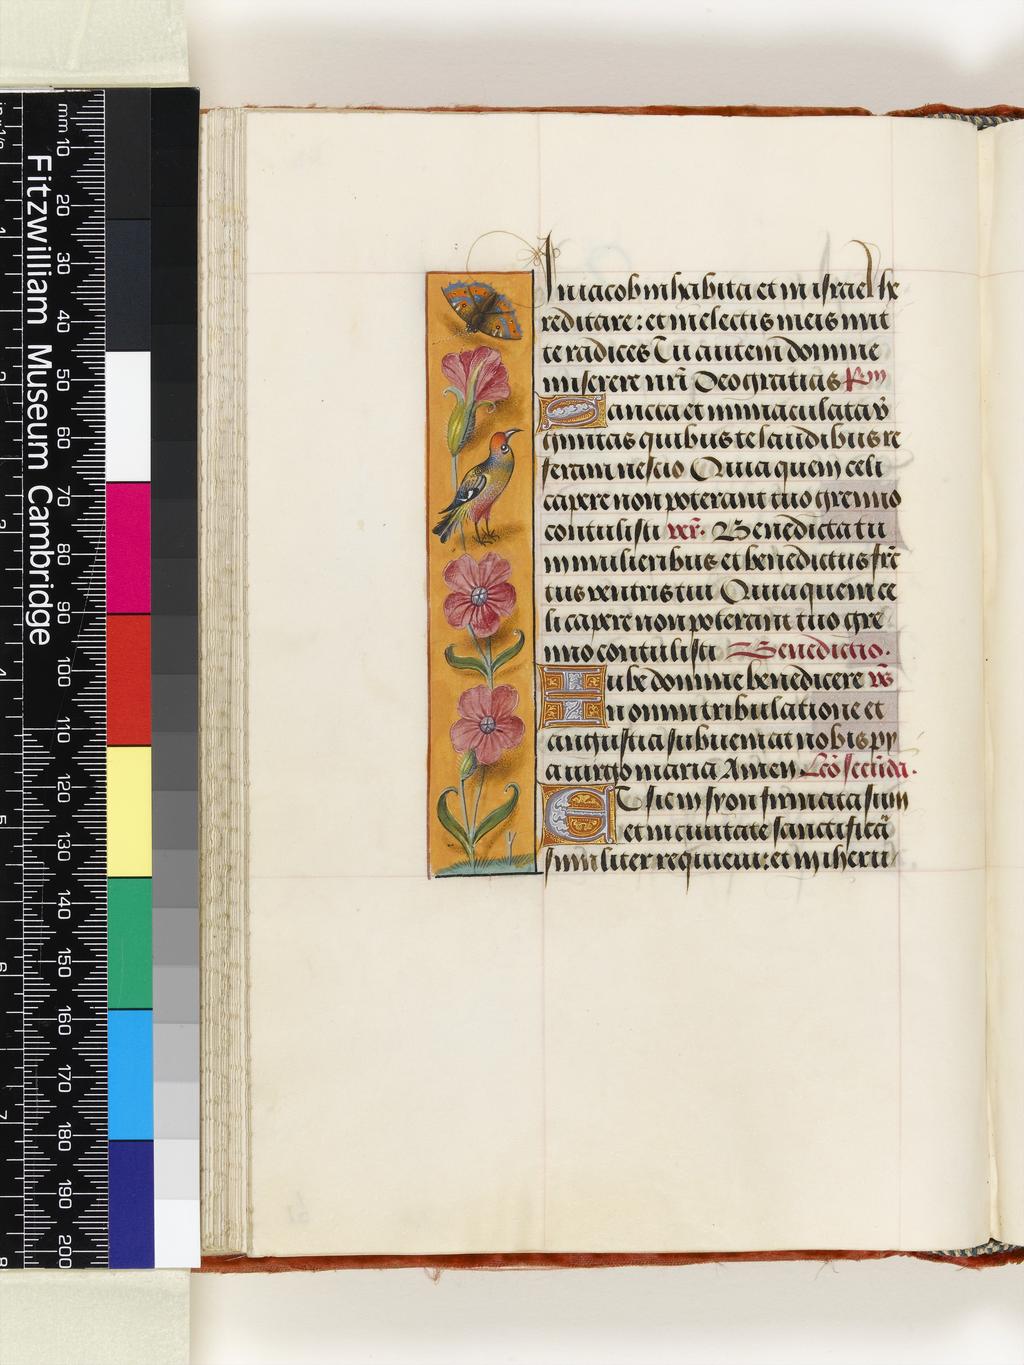 Fitzwilliam Museum Cambridge
mm 10 20 30 40 50 60 70 80 90 100 110 120 130 140 150 160 170 180 190 200
In iacob inhabita et in israel he
reditare: et in electis meis mit
te radices Tu autem domine
miserere nri Deo gratias
Sancta et immaculata v
ginitas quibus te laudibus re
feram nescio Quia quem celi
capere non poterant tuo gremio
contulisti ver. Benedicta tu
in mulieribus et benedictus fruc
tus ventris tui Quia quem ce
li capere non poterant tuo gre
mio contulisti Benedictio.
Iube domine benedicere
In omni tribulatione et
angustia subueniat nobis py
a uirgo maria Amen Leo secuda.
Et sic in syon firmata sum
et in ciuitate sanctificā
similiter requieui: et in iheru